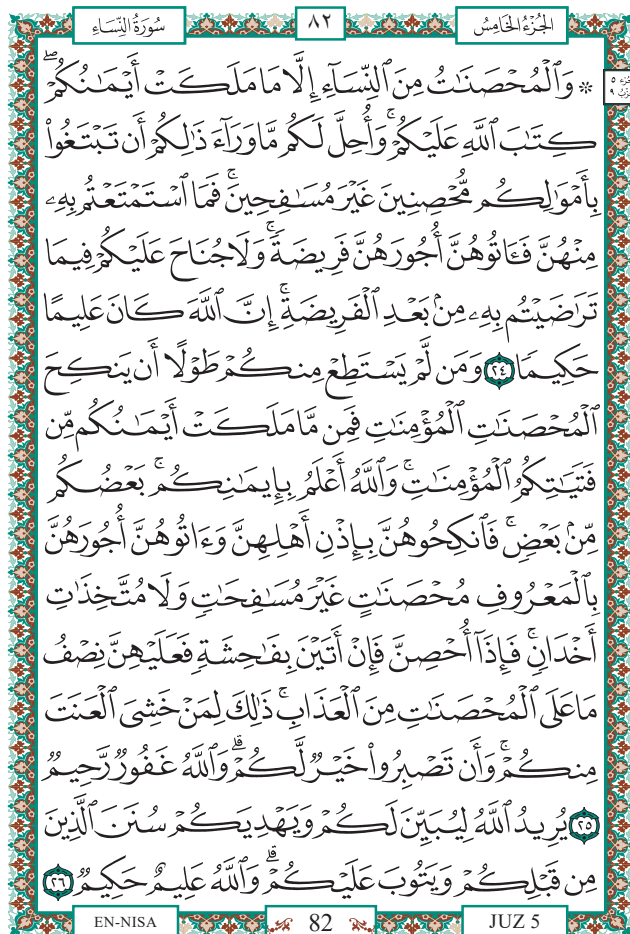 سُورَةُ النِّسَاءِ ٨٢ الجُزْءُ الخَامِسُ
۞ وَٱلْمُحْصَنَٰتُ مِنَ ٱلنِّسَآءِ إِلَّا مَا مَلَكَتْ أَيْمَٰنُكُمْ ۖ
كِتَٰبَ ٱللَّهِ عَلَيْكُمْ ۚ وَأُحِلَّ لَكُم مَّا وَرَآءَ ذَٰلِكُمْ أَن تَبْتَغُوا۟
بِأَمْوَٰلِكُم مُّحْصِنِينَ غَيْرَ مُسَٰفِحِينَ ۚ فَمَا ٱسْتَمْتَعْتُم بِهِۦ
مِنْهُنَّ فَـَٔاتُوهُنَّ أُجُورَهُنَّ فَرِيضَةً ۚ وَلَا جُنَاحَ عَلَيْكُمْ فِيمَا
تَرَٰضَيْتُم بِهِۦ مِنۢ بَعْدِ ٱلْفَرِيضَةِ ۚ إِنَّ ٱللَّهَ كَانَ عَلِيمًا
حَكِيمًا ٢٤ وَمَن لَّمْ يَسْتَطِعْ مِنكُمْ طَوْلًا أَن يَنكِحَ
ٱلْمُحْصَنَٰتِ ٱلْمُؤْمِنَٰتِ فَمِن مَّا مَلَكَتْ أَيْمَٰنُكُم مِّن
فَتَيَٰتِكُمُ ٱلْمُؤْمِنَٰتِ ۚ وَٱللَّهُ أَعْلَمُ بِإِيمَٰنِكُم ۚ بَعْضُكُم
مِّنۢ بَعْضٍ ۚ فَٱنكِحُوهُنَّ بِإِذْنِ أَهْلِهِنَّ وَءَاتُوهُنَّ أُجُورَهُنَّ
بِٱلْمَعْرُوفِ مُحْصَنَٰتٍ غَيْرَ مُسَٰفِحَٰتٍ وَلَا مُتَّخِذَٰتِ
أَخْدَانٍ ۚ فَإِذَآ أُحْصِنَّ فَإِنْ أَتَيْنَ بِفَٰحِشَةٍ فَعَلَيْهِنَّ نِصْفُ
مَا عَلَى ٱلْمُحْصَنَٰتِ مِنَ ٱلْعَذَابِ ۚ ذَٰلِكَ لِمَنْ خَشِىَ ٱلْعَنَتَ
مِنكُمْ ۚ وَأَن تَصْبِرُوا۟ خَيْرٌ لَّكُمْ ۗ وَٱللَّهُ غَفُورٌ رَّحِيمٌ
٢٥ يُرِيدُ ٱللَّهُ لِيُبَيِّنَ لَكُمْ وَيَهْدِيَكُمْ سُنَنَ ٱلَّذِينَ
مِن قَبْلِكُمْ وَيَتُوبَ عَلَيْكُمْ ۗ وَٱللَّهُ عَلِيمٌ حَكِيمٌ ٢٦
EN-NISA 82 JUZ 5